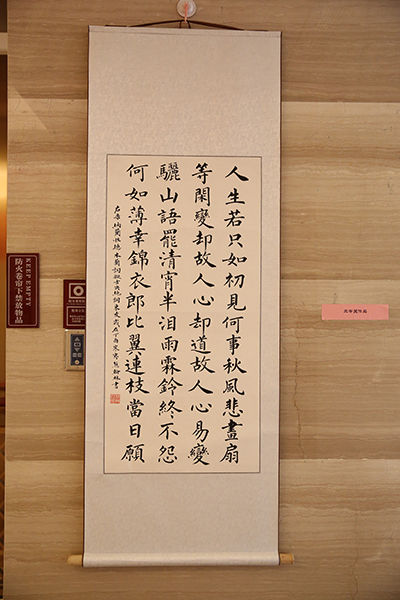 人生若只如初見何事秋風悲畫扇
等閑變却故人心却道故人心易變
驪山語罷清宵半泪雨霖鈴終不怨
何如薄幸錦衣郎比翼連枝當日願
納蘭性德木蘭詞
KEEP EMPTY
防火卷帘下禁放物品